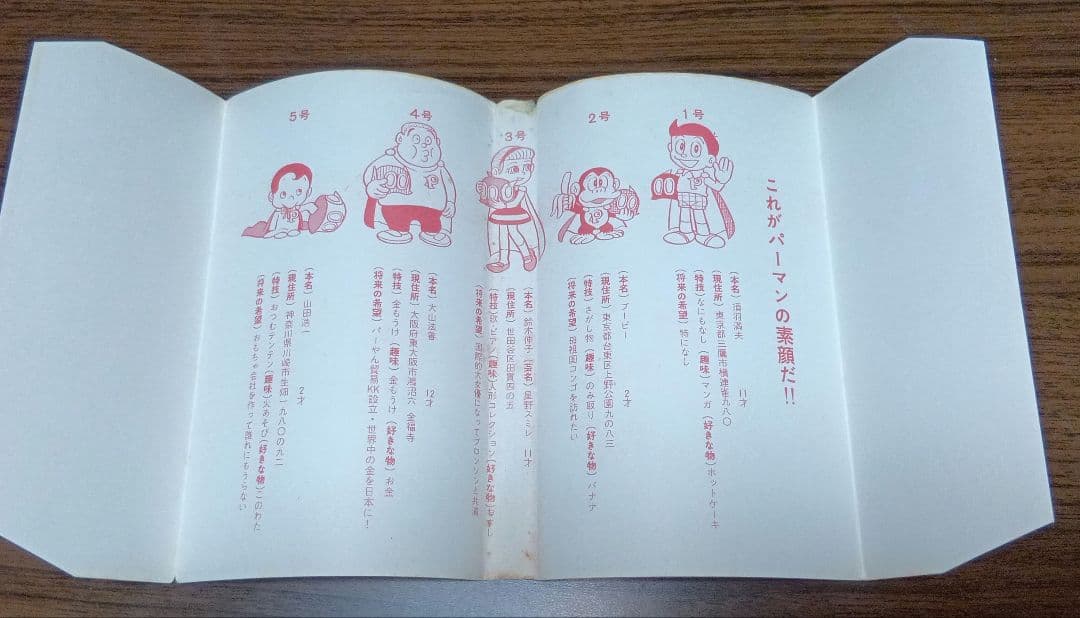 これがパーマンの素顔だ!!
1号
(本名) 須羽満夫 11才
(現住所) 東京都三鷹市横連雀九八〇
(特技) なにもなし (趣味) マンガ (好きな物) ホットケーキ
(将来の希望) 特になし
2号
(本名) ブービー 2才
(現住所) 東京都台東区上野公園九の八三
(特技) さがし物 (趣味) のみ取り (好きな物) バナナ
(将来の希望) 母祖国コンゴを訪れたい
3号
(本名) 鈴木伸子 (芸名) 星野スミレ 11才
(現住所) 世田谷区田貫四の五
(特技) 歌・ピアノ (趣味) 人形コレクション (好きな物) おすし
(将来の希望) 国際的大女優になってブロンソンと共演
4号
(本名) 大山法善 12才
(現住所) 大阪府東大阪市鴻沼穴 全福寺
(特技) 金もうけ (趣味) 金もうけ (好きな物) お金
(将来の希望) パーやん貿易KK設立・世界中の金を日本に!
5号
(本名) 山田浩一 2才
(現住所) 神奈川県川崎市生畑一九八〇の九二
(特技) おつむテンテン (趣味) 火あそび (好きな物) このわた
(将来の希望) おもちゃ会社を作って誰れにもうらない